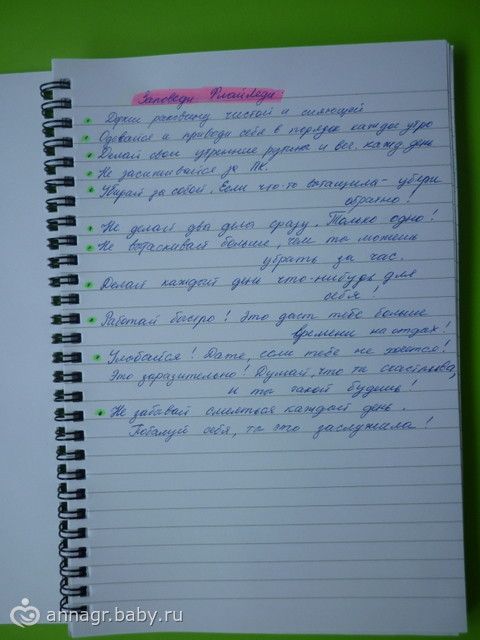 Заповеди ФлайЛеди:
Держи раковину чистой и сияющей
Одевайся и приводи себя в порядок каждое утро
Делай свои утренние рутины и веч. кажд. день
Не засиживайся за ПК.
Убирай за собой. Если что-то вытащила - убери
обратно!
Не делай два дела сразу. Только одно!
Не вытаскивай больше, чем ты можешь
убрать за час.
Делай каждый день что-нибудь для
себя!
Работай быстро! Это даст тебе больше
времени на отдых!
Улыбайся! Даже, если тебе не хочется!
Это заразительно! Думай, что ты счастлива,
и ты такой будешь!
Не забывай смеяться каждый день.
Побалуй себя, ты это заслужила!
annagr.baby.ru